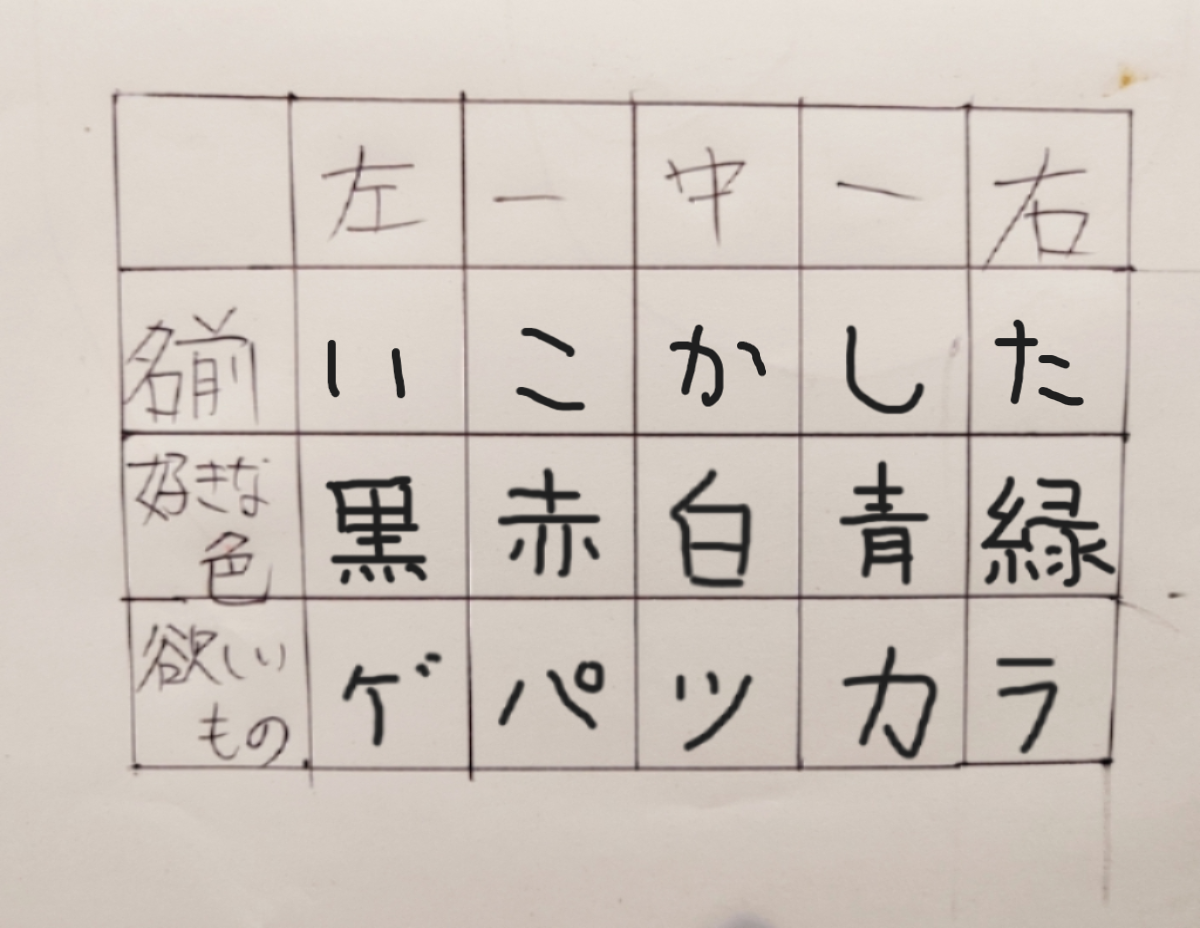 左 一 中 一 右
名前 い こ か し た
好きな色 黒 赤 白 青 緑
欲しいもの ゲ パ ツ カ ラ